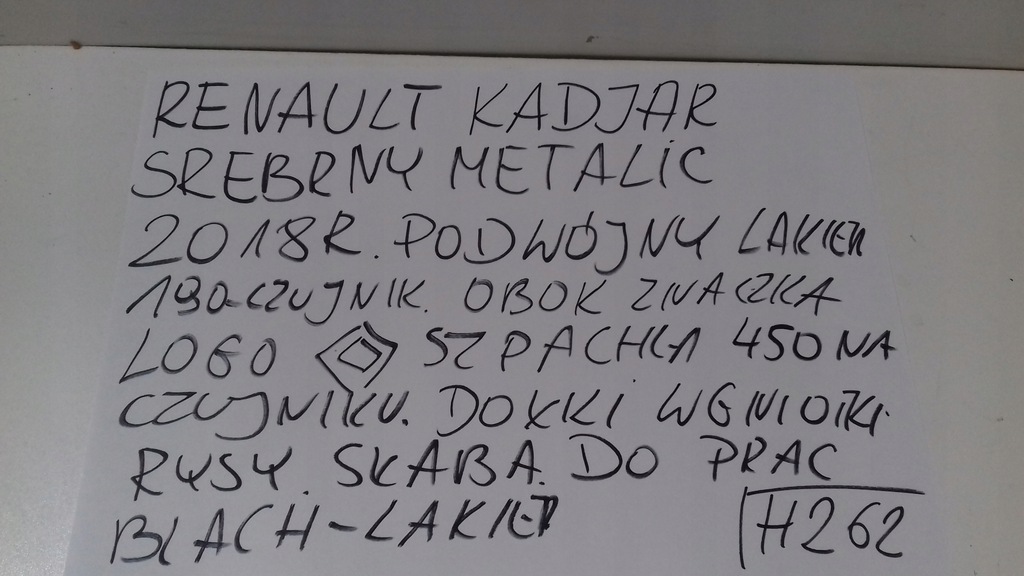 RENAULT KADJAR
SREBRNY METALiC
2018R. PODWÓJNY LAKIER
190-CZUJNIK. OBOK ZNACZKA
LOGO SZPACHLA 450 NA
CZUJNIKU. DOKKi WGNIOTKi.
RYSY. SKABA. DO PRAC
BLACH-LAKIER
H262